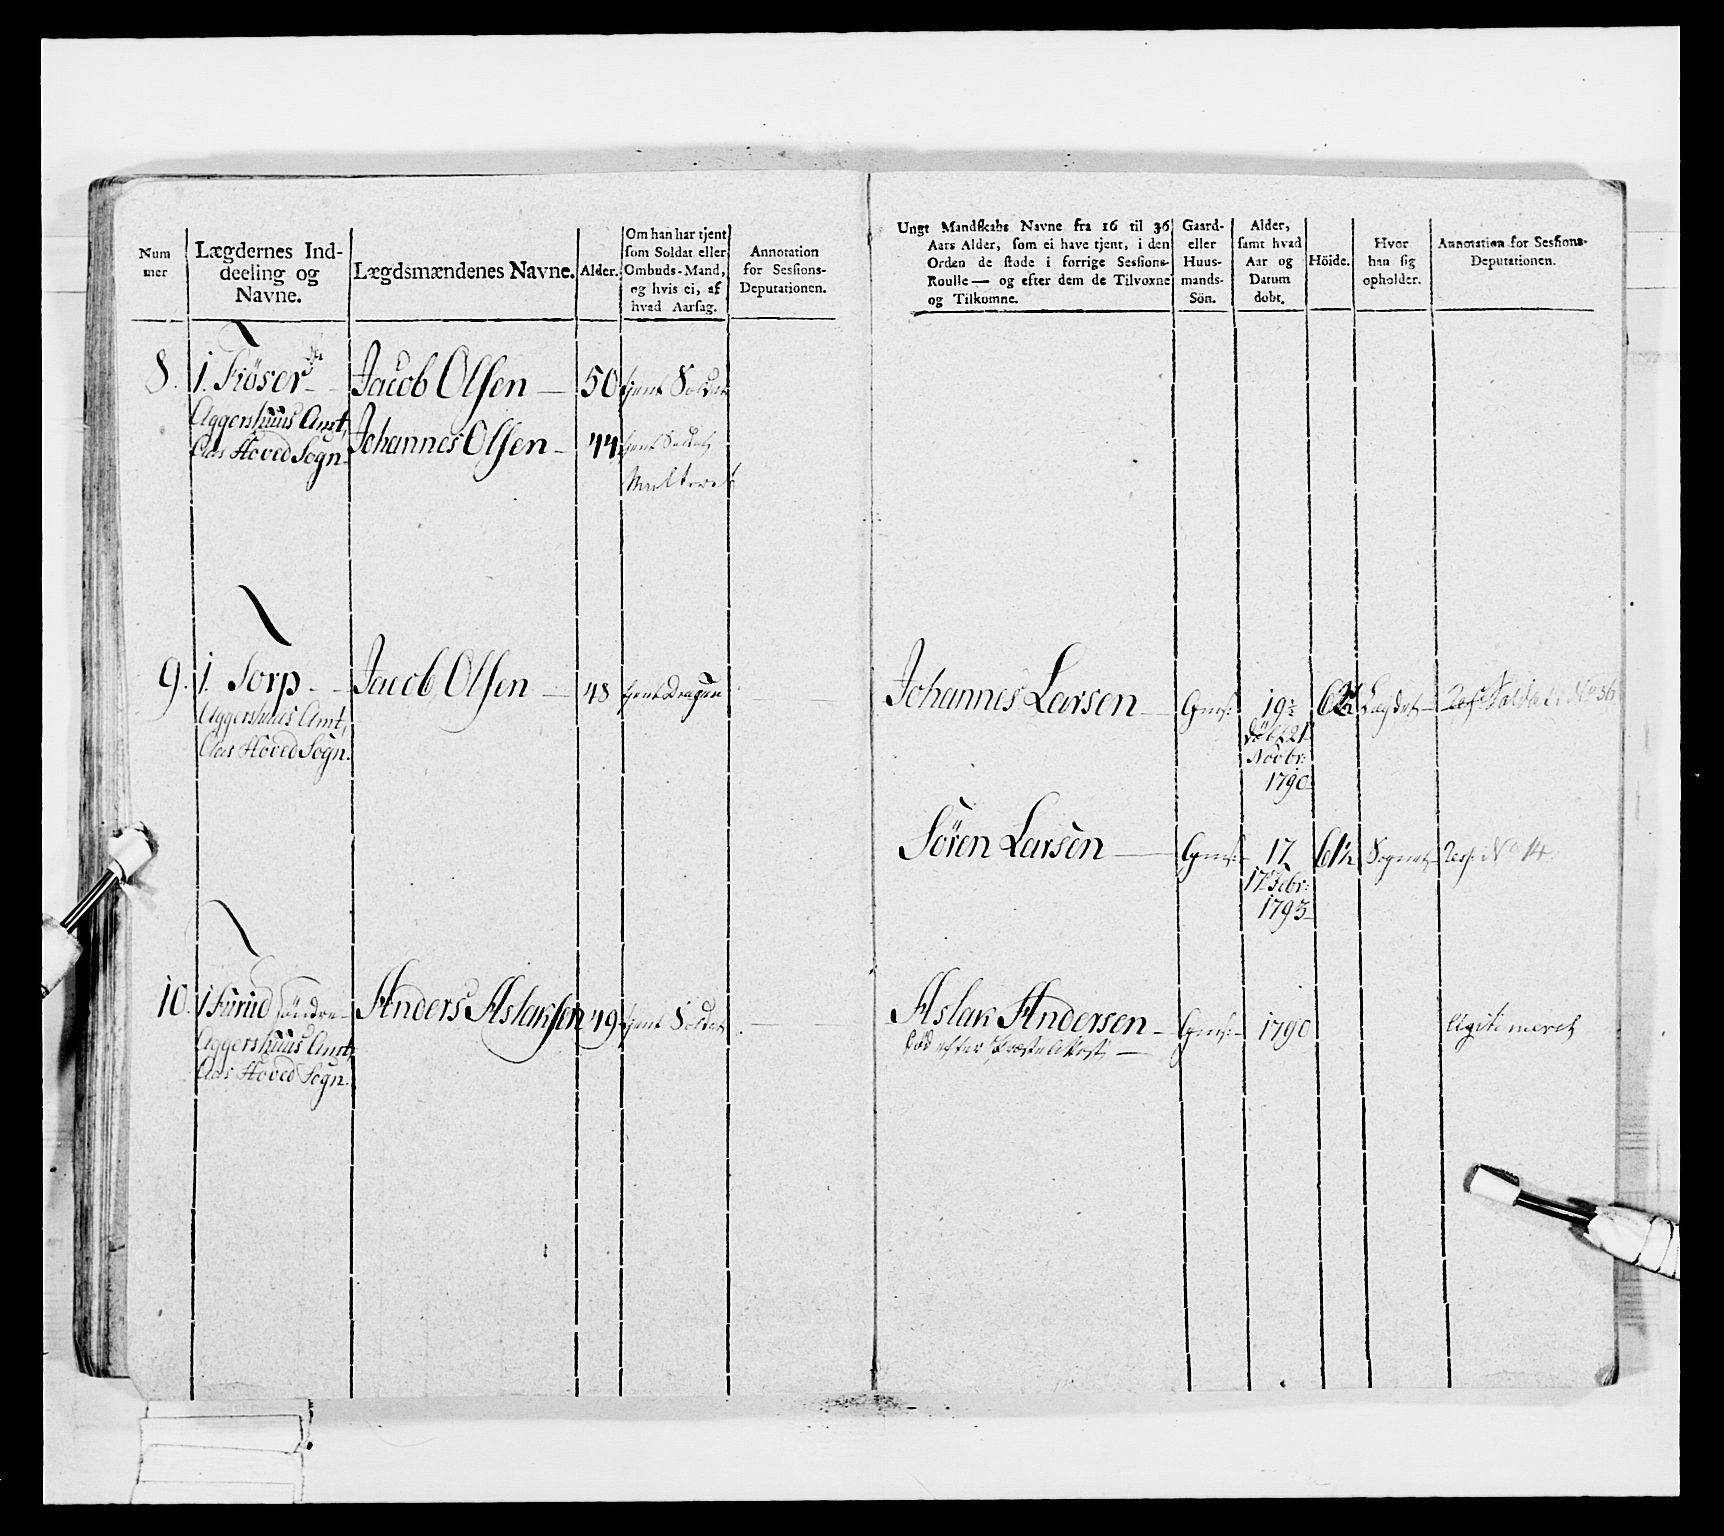 Num
mer
Lægdernes Ind-
deeling og
Navne.
Lægdsmændenes Navne.
Alder.
Om han har tjent
som Soldat eller
Ombuds-Mand,
og hvis ei, af
hvad Aarsag.
Annotation
for Sessions-
Deputationen.
Ungt Mandskabs Navne fra 16 til 36
Aars Alder, som ei have tjent, i den
Orden de stode i forrige Sessions-
Roulle — og efter dem de Tilvoxne
og Tilkomne.
Gaard-
eller
Huus-
mands-
Sön.
Alder,
samt hvad
Aar og
Datum
döbt.
Höide.
Hvor
han sig
opholder.
Annotation for Sessions-
Deputationen.
8. 1. Fiöser Jacob Olsen — 50 tjent Soldat
Aggershuus Amt, Johannes Olsen — 44 tjent Soldat
Aas Hoved Sogn
9. 1. Sorp — Jacob Olsen — 48 tjent Dragun
Aggershuus Amt,
Aas Hoved Sogn.
Johannes Larsen — Gms: 19½ Lægdet — Soldat No 36
döbt 21
Novbr:
1790
Sören Larsen — Gms: 17 61½ Sognet No 14
17 Febr:
1793
10. 1 Furud söndre — Anders Aslaksen 49 tjent Soldat
Aggershuus Amt,
Aas Hoved Sogn.
Aslak Andersen — Gms: 1790
död efter Præste Attest —